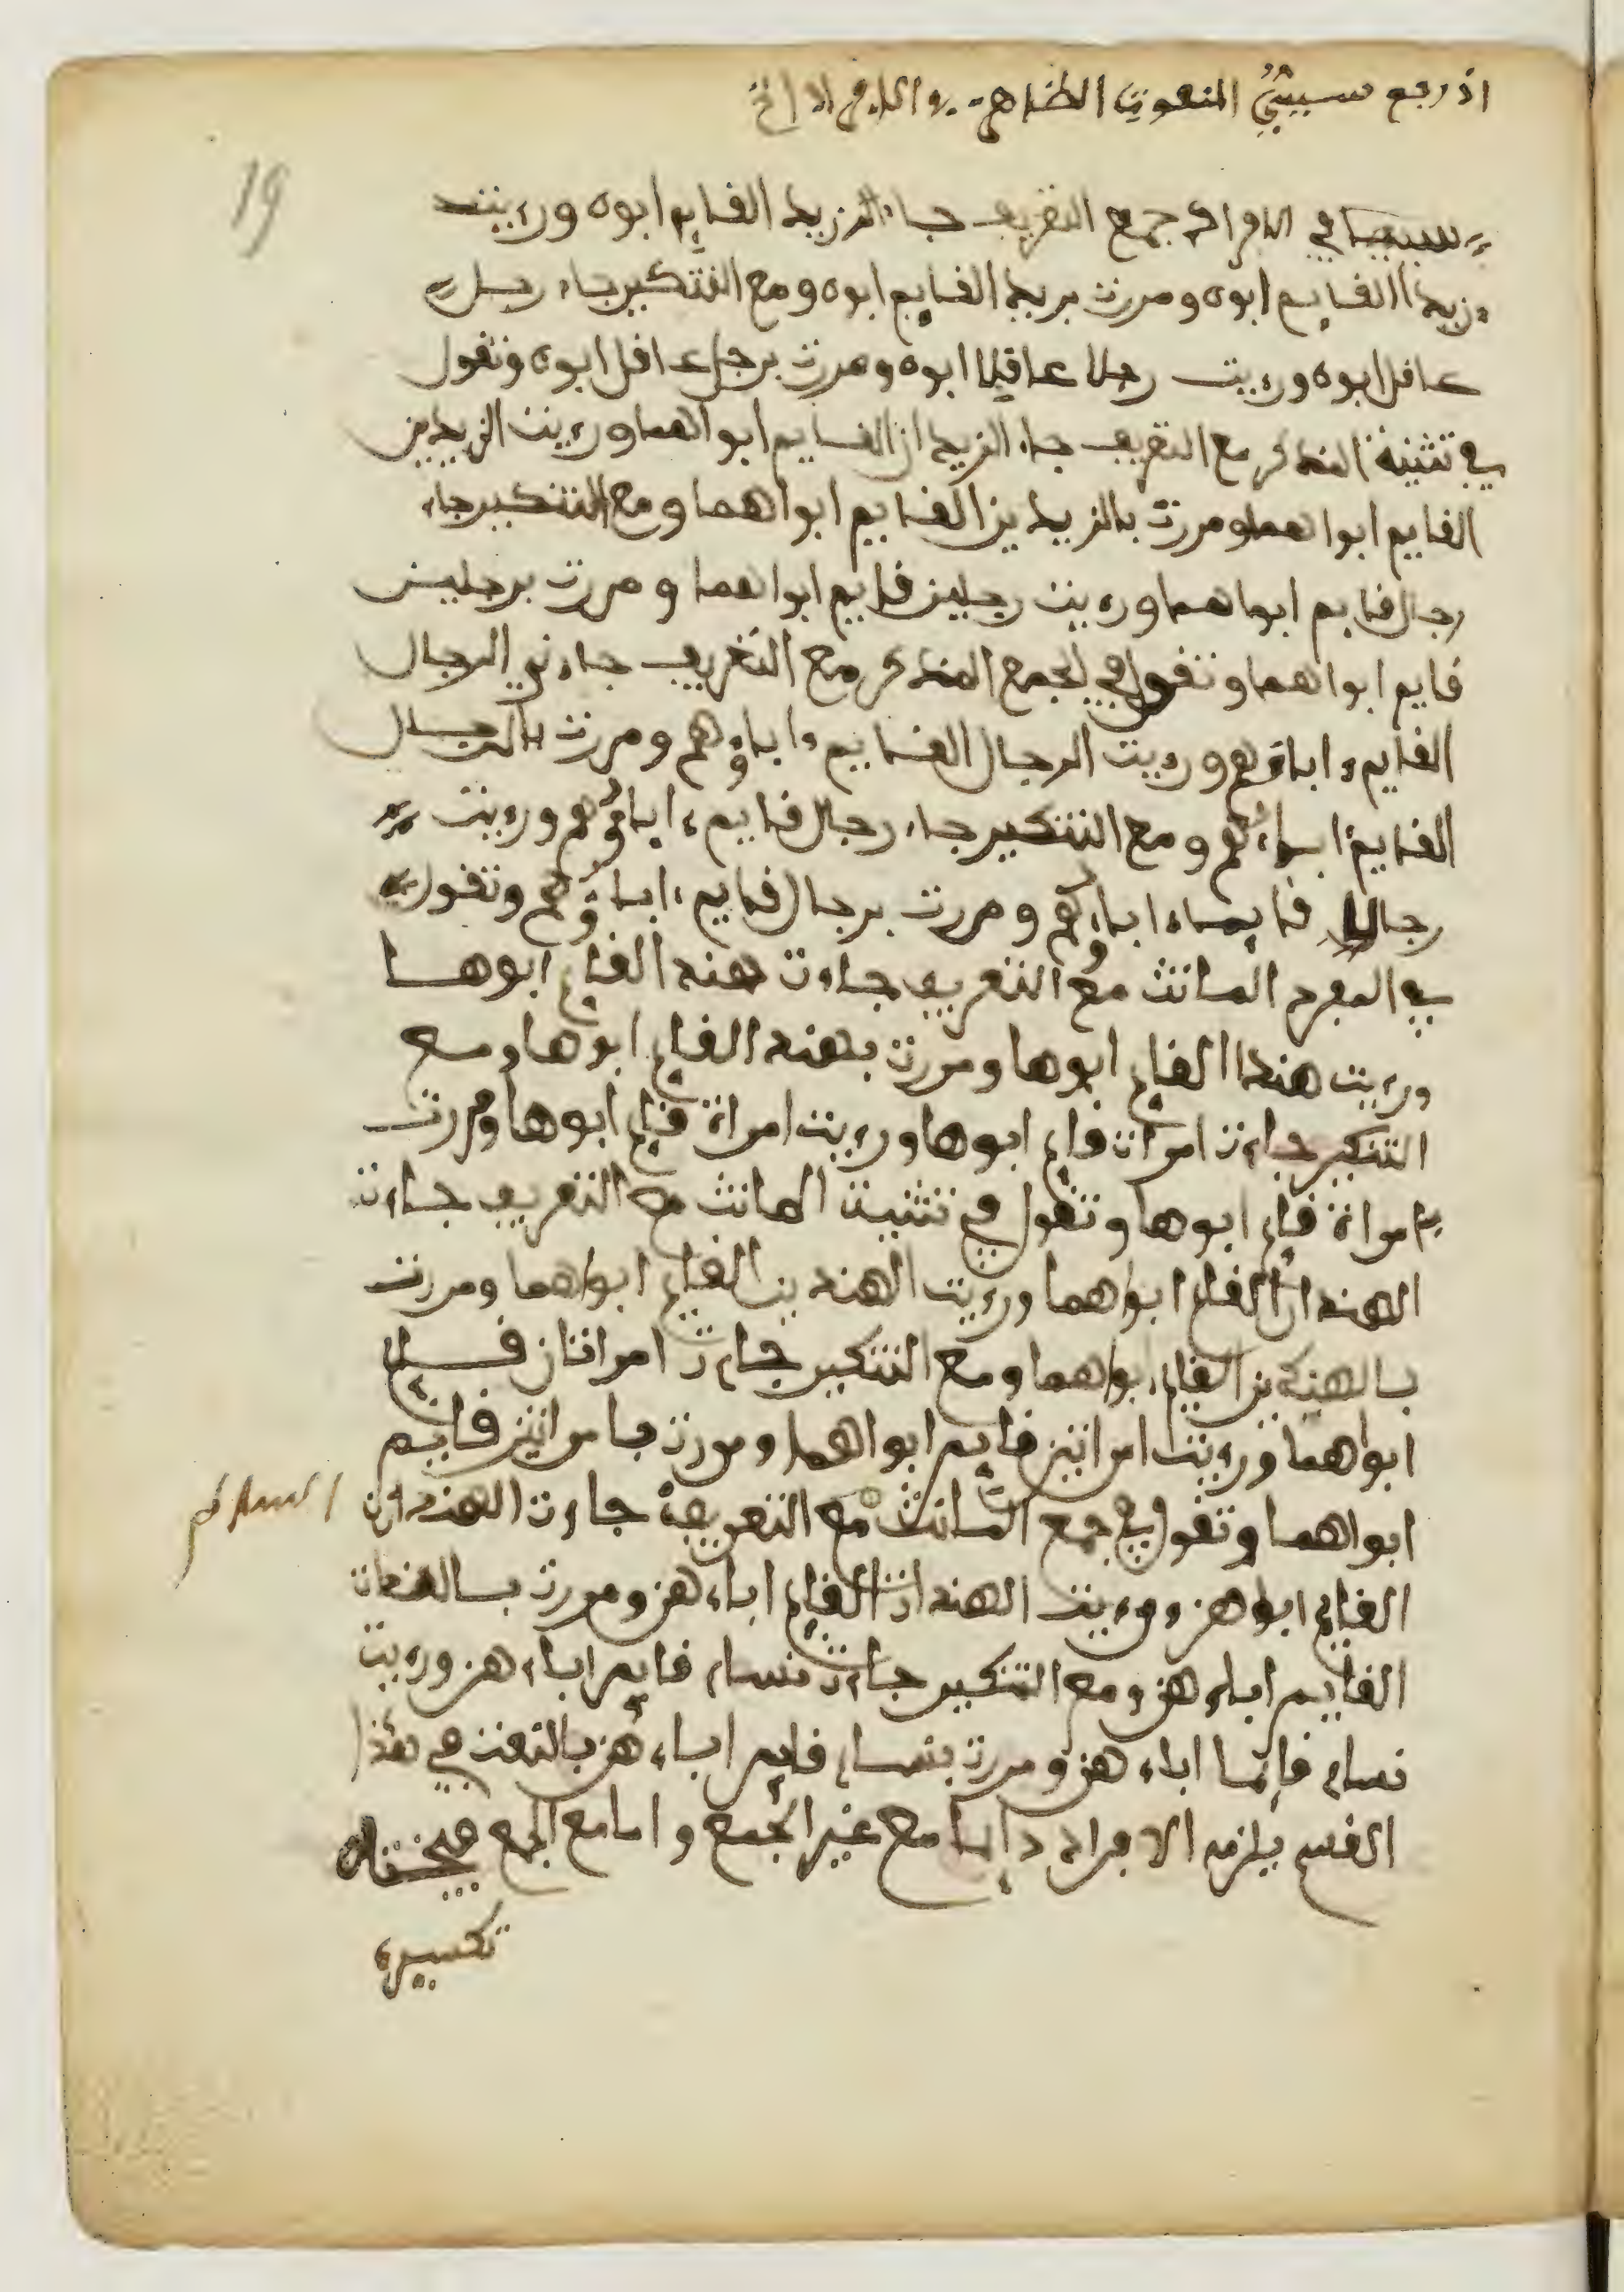 اذ رجع سببيُّ المنعوت الظاهر
19
سببيا في الافراد جمع التعريف جاء الزيد القايم ابوه ورءيت
زيدا القايم ابوه ومررت بزيد القايم ابوه ومع التنكير جاء رجل
عاقل ابوه ورءيت رجلا عاقلا ابوه ومررت برجل عاقل ابوه وتقول
في تثنية المذكر مع التعريف جاء الزيدان القايم ابواهما ورءيت الزيدين
القايم ابواهما ومررت بالزيدين القايم ابواهما ومع التنكير جاء
رجال قايم ابواهما ورءيت رجلين قايم ابواهما ومررت برجلين
قايم ابواهما وتقول في الجمع المذكر مع التعريف جاءني الرجال
القايم ءاباؤهم ورءيت الرجال القايم ءاباؤهم ومررت بالرجال
القايم ءاباءهم ومع التنكير جاء رجال قايم ءاباؤهم ورءيت
رجالا قايما ءاباءهم ومررت برجال قايم ءاباؤهم وتقول
في المفرد المانث مع التعريف جاءت هند القايم ابوها
ورءيت هندا القايم ابوها ومررت بهند القايم ابوها ومع
التنكير جاءت امرات قايم ابوها ورءيت امراة قايم ابوها ومررت
بامراة قايم ابوها وتقول في تثنية المانث مع التعريف جاءت
الهندان القايم ابواهما ورءيت الهندين القايم ابواهما ومررت
بالهندين القايم ابواهما ومع التنكير جاءت امراتان قايم
ابواهما ورءيت امراتين قايم ابواهما ومررت بامراتين قايم
ابواهما وتقول في جمع المانث مع التعريف جاءت الهندات
القايم ابوهن ورءيت الهندات القايم اباءهن ومررت بالهندات
القايم اباءهن ومع التنكير جاءت نساء قايم اباءهن ورءيت
نساء قايما اباءهن ومررت بنساء قايم اباءهن بالنعت في هذا
القسم يلزم الافراد دايما مع غير الجمع واما مع الجمع فيختار
تكسيره